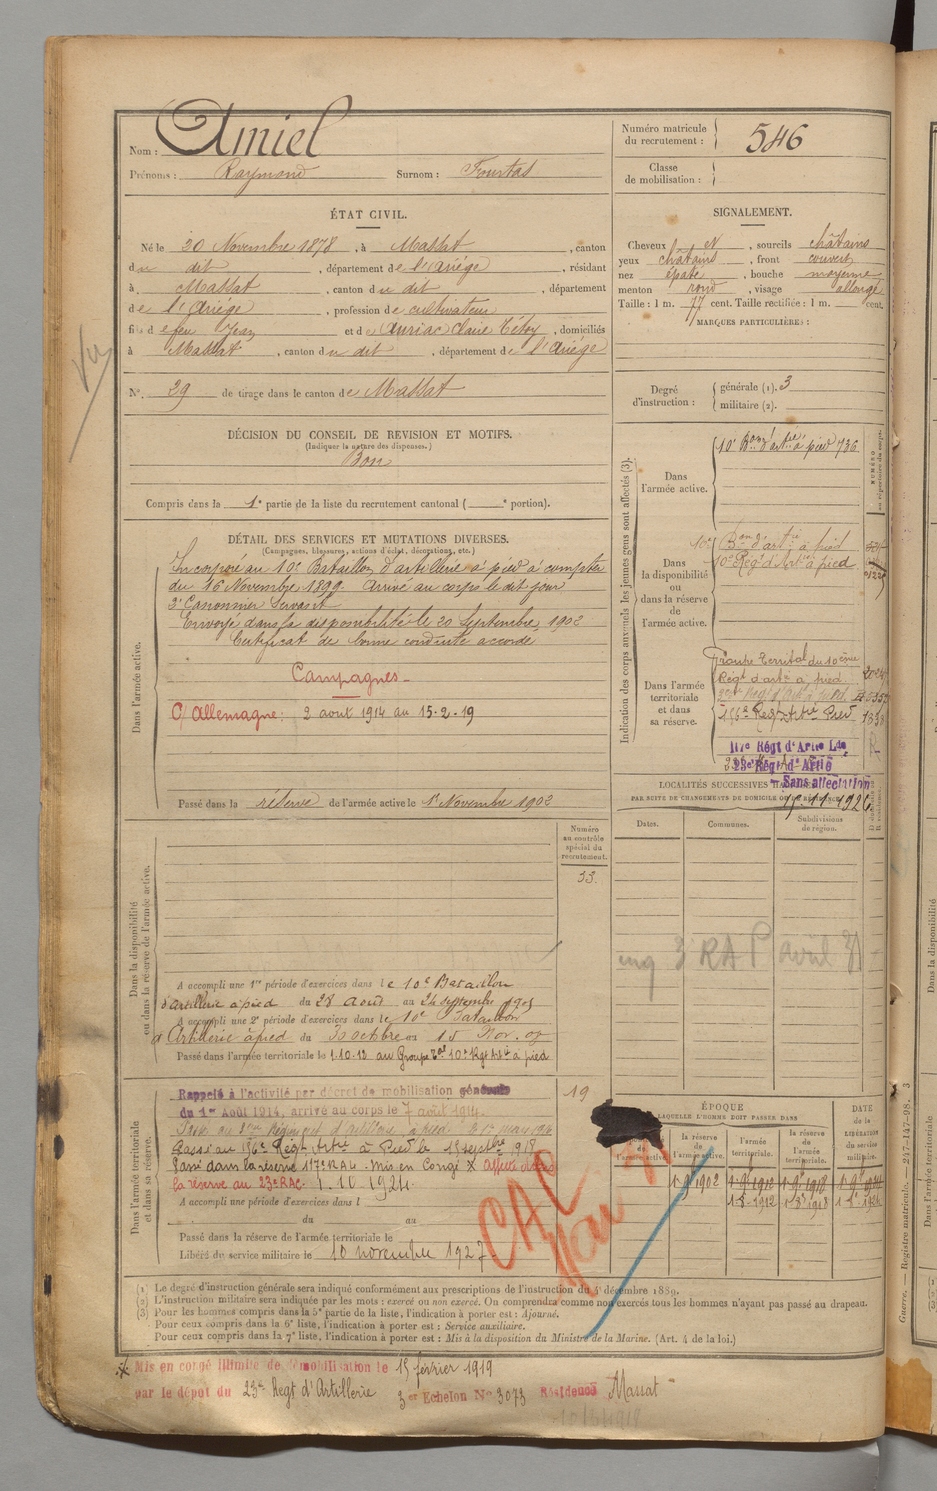 Nom : Amiel
Prénoms : Raymond Surnom : Fourtas
Numéro matricule
du recrutement : 546
Classe
de mobilisation :
ÉTAT CIVIL.
Né le 20 Novembre 1878, à Massat, canton
du dit, département de l'Ariége, résidant
à Massat, canton du dit, département
de l'Ariége, profession de cultivateur
fils de feu Jean et de Auriac Claire, domiciliés
à Massat, canton du dit, département de l'Ariége
No. 29 de tirage dans le canton de Massat
SIGNALEMENT.
Cheveux et, sourcils châtains
yeux châtains, front couvert
nez épaté, bouche moyenne
menton rond, visage allongé
Taille : 1 m. 77 cent. Taille rectifiée : 1 m. cent.
MARQUES PARTICULIÈRES :
Degré
d'instruction :
générale (1). 3
militaire (2).
DÉCISION DU CONSEIL DE REVISION ET MOTIFS.
(Indiquer la nature des dispenses.)
Bon
Compris dans la 1e partie de la liste du recrutement cantonal ( e portion).
DÉTAIL DES SERVICES ET MUTATIONS DIVERSES.
(Campagnes, blessures, actions d'éclat, décorations, etc.)
Dans l'armée active.
Incorporé au 10e Bataillon d'artillerie à pied à compter
du 16 Novembre 1899. Arrivé au corps le dit jour
2e Canonnier Servant
Envoyé dans la disponibilité le 20 Septembre 1902
Certificat de bonne conduite accordé
Campagnes
C/ Allemagne : 2 août 1914 au 15-2-19
Passé dans la réserve de l'armée active le 1er Novembre 1902
Indication des corps auxquels les jeunes gens sont affectés (3).
NUMÉRO
au répertoire du corps.
Dans
l'armée active.
10e Bon d'artie à pied 736
Dans
la disponibilité
ou
dans la réserve
de
l'armée active.
10e Bon d'artie à pied
10e Régt d'Artie à pied
Dans l'armée
territoriale
et dans
sa réserve.
Groupe Territal du 10ème
Régt d'artie à pied
156e Regt Artie Pied
117e Régt d'Artie Lde
23e Régt d'Artie
Sans affectation
LOCALITÉS SUCCESSIVES
PAR SUITE DE CHANGEMENTS DE DOMICILE OU DE RÉSIDENCE
Dates. Communes. Subdivisions
de région.
3 RAP avril 31
Dans la disponibilité
ou dans la réserve de l'armée active.
Numéro
au contrôle
spécial du
recrutement.
33
A accompli une 1re période d'exercices dans le 10e Bataillon
d'artillerie à pied du 28 août au 24 septembre 1905
A accompli une 2e période d'exercices dans le 10e Bataillon
d'Artillerie à pied du 30 octbre au 15 Nov. 07
Passé dans l'armée territoriale le 1-10-12 au Groupe Tal 10e Rgt Artie à pied
Dans l'armée territoriale
et dans sa réserve.
19
Rappelé à l'activité par décret de mobilisation générale
du 1er Août 1914, arrivé au corps le 7 août 1914
Passé au 156e Régt Artie à Pied le 15 septbre 1918
Passé dans la réserve 117e RAL. Mis en Congé X affecté dans
la réserve au 23e RAC. 1.10.1924.
A accompli une période d'exercices dans l
du au
Passé dans la réserve de l'armée territoriale le
Libéré du service militaire le 10 novembre 1927
CAC
Mai 31
ÉPOQUE
LAQUELLE L'HOMME DOIT PASSER DANS
la réserve
de
l'armée active.
l'armée
territoriale.
la réserve
de
l'armée
territoriale.
DATE
de la
LIBÉRATION
du service
militaire.
1-9 1902 1-9 1912 1-9 1918 1-9 1924
1-8-1912
(1) Le degré d'instruction générale sera indiqué conformément aux prescriptions de l'instruction du 4 décembre 1889.
(2) L'instruction militaire sera indiquée par les mots : exercé ou non exercé. On comprendra comme non exercés tous les hommes n'ayant pas passé au drapeau.
(3) Pour les hommes compris dans la 5e partie de la liste, l'indication à porter est : Ajourné.
Pour ceux compris dans la 6e liste, l'indication à porter est : Service auxiliaire.
Pour ceux compris dans la 7e liste, l'indication à porter est : Mis à la disposition du Ministre de la Marine. (Art. 4 de la loi.)
X Mis en congé illimité de démobilisation le 15 février 1919
par le dépot du 23e Regt d'Artillerie 3er Echelon No 3073 Résidence Massat
Guerre. — Registre matricule. — 247-147-98. 3
Dans l'armée territoriale